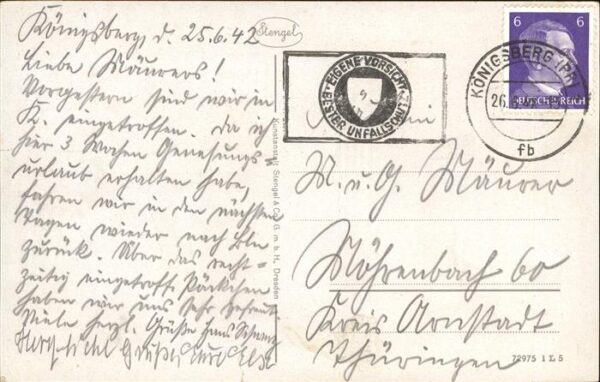 Königsberg, d. 25.6.42
Liebe Mäurers!
Vorgestern sind wir in
K. eingetroffen. Da ich
hier 3 Wochen Genesungs-
urlaub erhalten habe,
fahren wir in den nächsten
Tagen wieder nach Bln
zurück. Über das recht-
zeitig eingetroff. Päckchen
haben wir uns sehr gefreut.
Viele herzl. Grüße Hans
Herzliche Grüße
Stengel
Kunstanstalt Stengel & Co., G. m. b. H., Dresden
EIGENE VORSICHT
BESTER UNFALLSCHUTZ
6 6
DEUTSCHES REICH
KÖNIGSBERG (PR)
26.
fb
M. u. G. Mäurer
Möhrenbach 60
Kreis Arnstadt
Thüringen
72975 1 L 5